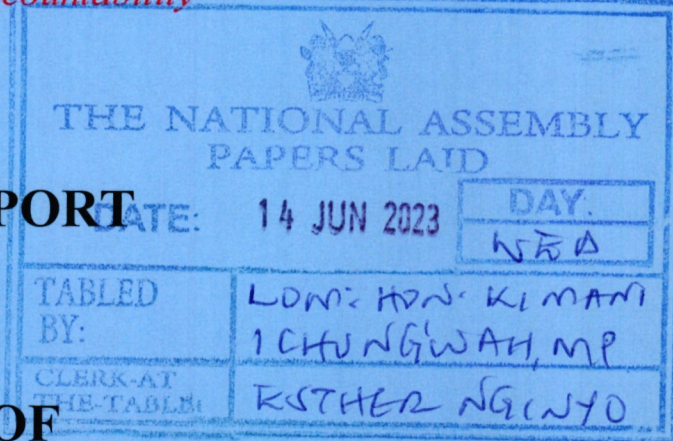 THE NATIONAL ASSEMBLY
PAPERS LAID
PORT
DATE: 14 JUN 2023 DAY.
WED
TABLED BY: LOM. HON. KIMANI ICHUNG'WAH, MP
CLERK-AT THE-TABLE: ESTHER NGINYO
OF